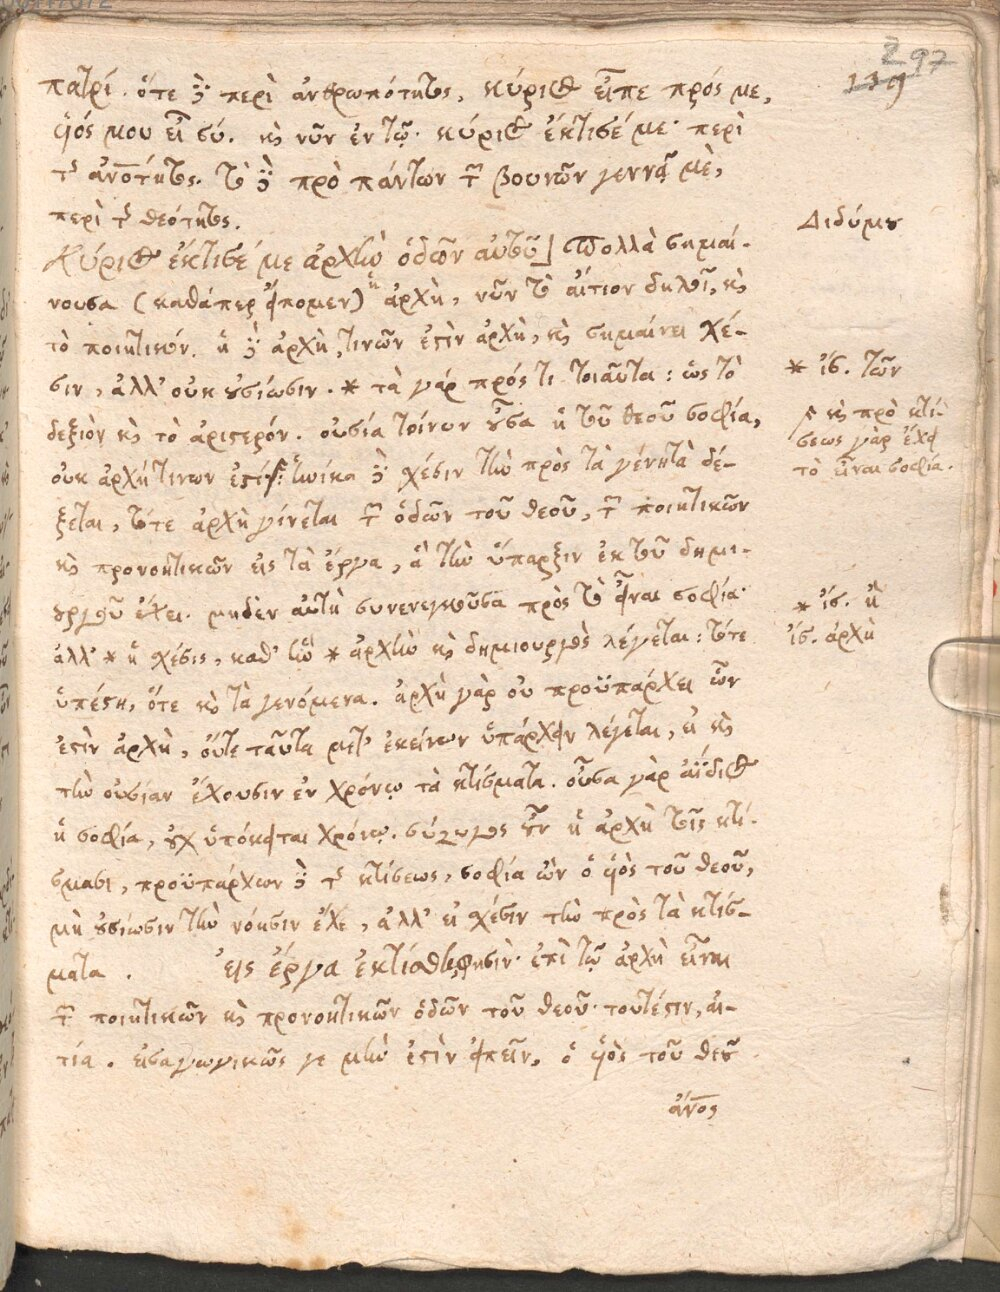 297
119
πατρί. ὅτε δὲ περὶ ἀνθρωπότητος, κύριος εἶπε πρός με,
υἱός μου εἶ σύ. καὶ νῦν ἐν τῷ· κύριος ἔκτισέ με· περὶ
τῆς ἀνοτητος. τὸ δὲ πρὸ πάντων τῶν βουνῶν γεννᾷ μὲ,
περὶ τῆς θεότητος.
Διδύμου
Κύριος ἔκτισέ με ἀρχὴν ὁδῶν αὐτοῦ] Πολλὰ σημαί-
νουσα (καθάπερ εἴπομεν) ἡ ἀρχὴ, νῦν τὸ αἴτιον δηλοῖ, καὶ
τὸ ποιητικόν. ἡ δὲ ἀρχὴ, τινῶν ἐστὶν ἀρχὴ, καὶ σημαίνει χέ-
σιν, ἀλλ' οὐκ οὐσίωσιν. * τὰ γάρ πρός τι τοιαῦτα: ὡς τὸ
* ἴσ. τῶν
δεξιὸν καὶ τὸ ἀριστερόν. οὐσία τοίνυν οὖσα ἡ τοῦ θεοῦ σοφία,
καὶ πρὸ κτί-
σεως γὰρ ἔχει
τὸ εἶναι σοφία.
οὐκ ἀρχή τινων ἐστί· ἡνίκα δὲ χέσιν τὴν πρὸς τὰ γένητὰ δέ-
ξεται, τότε ἀρχὴ γίνεται τῶν ὁδῶν τοῦ θεοῦ, τῶν ποιητικῶν
καὶ προνοητικῶν εἰς τὰ ἔργα, ἃ τὴν ὕπαρξιν ἐκ τοῦ δημι-
ουργοῦ ἔχει. μηδὲν αὐτὴ συνενεγκοῦσα πρὸς τὸ εἶναι σοφία·
* ἴσ. ἢ
ἀλλ' * ἡ χέσις, καθ' ἣν * ἀρχὴν καὶ δημιουργὸς λέγεται: τότε
ἴσ. ἀρχὴ
ὑπέστη, ὅτε καὶ τὰ γενόμενα. ἀρχὴ γὰρ οὐ προϋπάρχει ὧν
ἐστὶν ἀρχὴ, οὔτε ταῦτα μετ' ἐκείνων ὑπάρχειν λέγεται, εἰ καὶ
τὴν οὐσίαν ἔχουσιν ἐν χρόνῳ τὰ κτίσματα. οὖσα γὰρ ἀΐδιος
ἡ σοφία, οὐχ ὑπόκειται χρόνῳ. σύζυγος οὖν ἡ ἀρχὴ τοῖς κτί-
σμασι, προϋπάρχων δὲ τῆς κτίσεως, σοφία ὢν ὁ υἱὸς τοῦ θεοῦ,
μὴ οὐσίωσιν τὴν νόησιν ἔχε, ἀλλ' εἰ χέσιν τὴν πρὸς τὰ κτίσ-
ματα. εἰς ἔργα ἐκτίσθη φησίν· ἐπὶ τῷ ἀρχὴ εἶναι
τῶν ποιητικῶν καὶ προνοητικῶν ὁδῶν τοῦ θεοῦ· τουτέστιν, αἰ-
τία. εἰσαγωγικῶς γε μὴν ἐστὶν εἰπεῖν, ὁ υἱὸς τοῦ θεοῦ
ἄνος